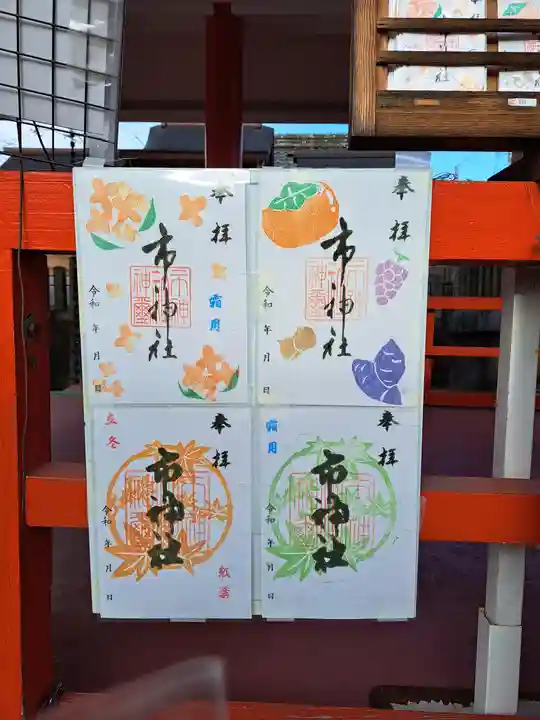 奉拝
市神社
霜月
令和 年 月 日
奉拝
市神社
令和 年 月 日
立冬
奉拝
市神社
令和 年 月 日
紅葉
霜月
奉拝
市神社
令和 年 月 日